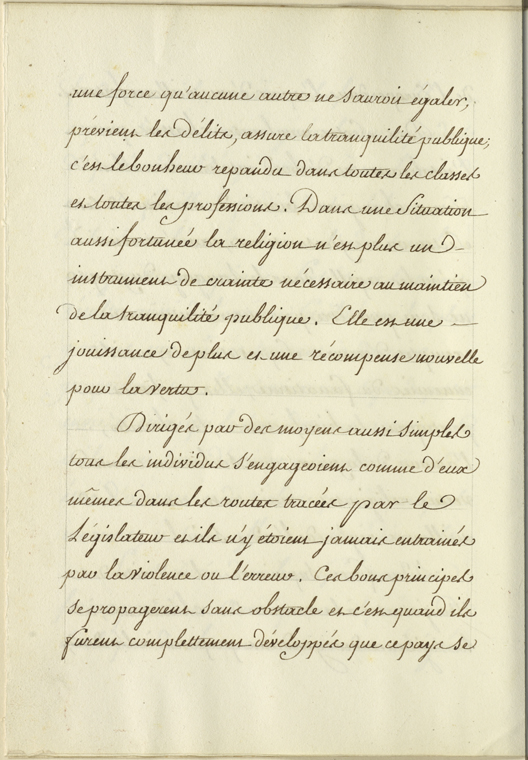 une force qu'aucune autre ne sauroit égaler,
prévient les délits, assure la tranquilité publique;
c'est le bonheur repandu dans toutes les classes
et toutes les professions. Dans une Situation
aussi fortunée la religion n'est plus un
instrument de crainte nécessaire au maintien
de la tranquilité publique. Elle est une
jouissance de plus et une récompense nouvelle
pour la vertu.
Dirigés par des moyens aussi simples
tous les individus s'engageoient comme d'eux
mêmes dans les routes tracées par le
Législateur et ils n'y étoient jamais entrainés
par la violence ou l'erreur. Ces bons principes
se propagerent sans obstacle et c'est quand ils
furent complettement développés que ce pays se